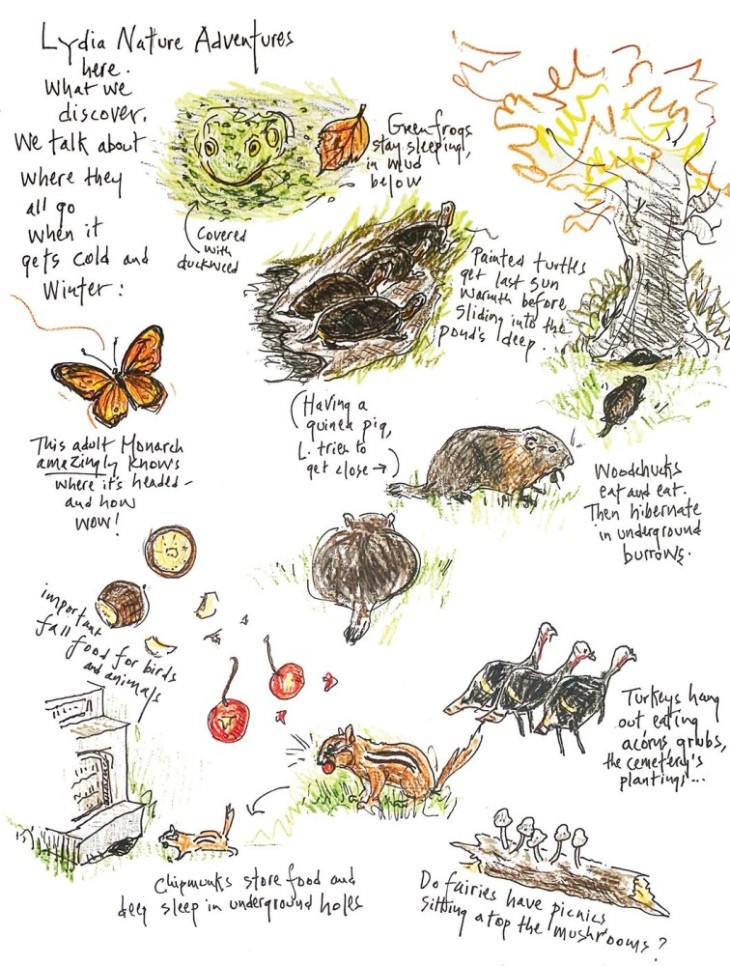 Lydia Nature Adventures
here.
What we
discover.
We talk about
where they
all go
when it
gets cold and
Winter:
Green frogs
stay sleeping,
in mud
below
Covered
with
duckweed
Painted turtles
get last sun
warmth before
sliding into the
pond's deep.
This adult Monarch
amazingly knows
where it's headed –
and how
WOW!
(Having a
guinea pig,
L. tries to
get close →)
Woodchucks
eat and eat.
Then hibernate
in underground
burrows.
important
fall food for birds
and animals
Turkeys hang
out eating
acorns, grubs,
the cemetery's
plantings...
Chipmunks store food and
deep sleep in underground holes
Do fairies have picnics
sitting atop the mushrooms?